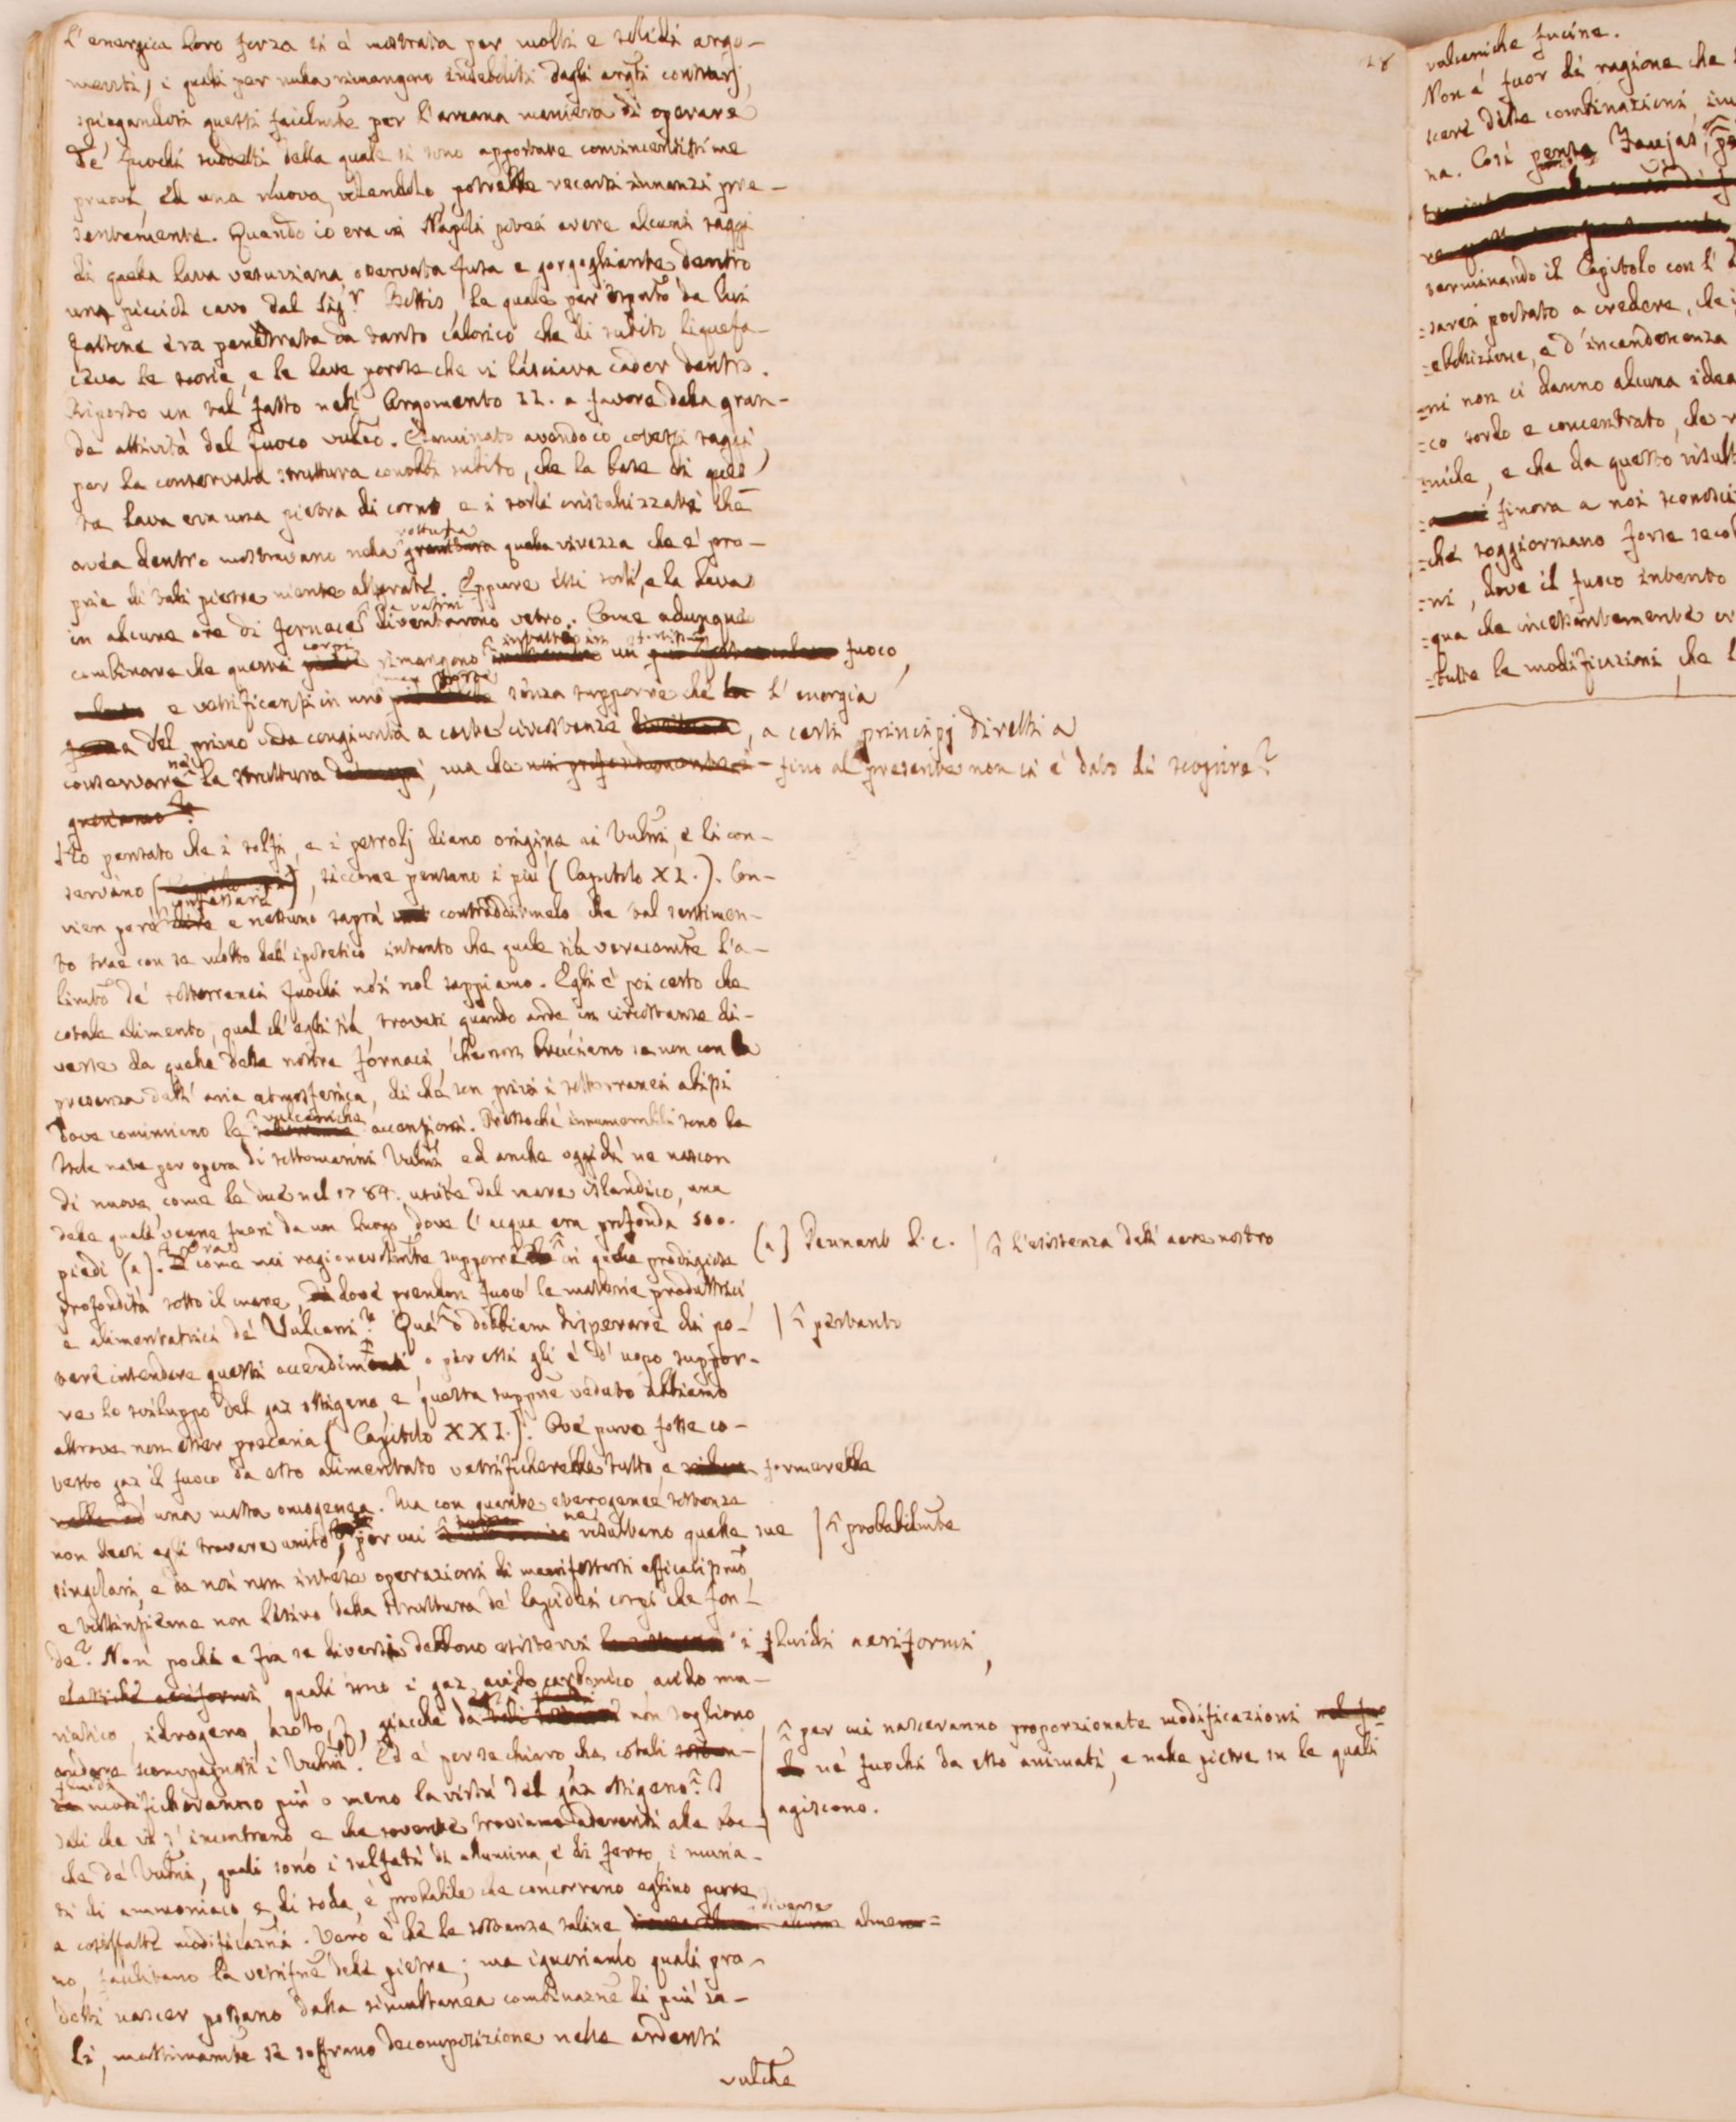 L'energica loro forza si è mostrata per molti e solidi argo-
menti, i quali per nulla rimangono indeboliti dagli argti contrarj,
spiegandosi questi facilmte per l'arcana maniera di operare
de' fuochi suddetti della quale si sono apportate convincentissime
pruove, ed una nuova, volendolo, potrebbe recarsi innanzi pre-
sentemente. Quando io era in Napoli potei avere alcuni saggi
di quella lava vesuviana, osservata fusa e gorgogliante dentro
una picciol cavo dal Sigr Bottis, la quale per rapporto da lui
fattone era penetrata da tanto calorico che di subito liquefa-
ceva le scorie, e le lave porose che vi lasciava cader dentro.
Riporto un tal fatto nell' Argomento II. a favore della gran-
de attività del fuoco vulco. Esaminato avendo io cotesti saggi,
per la conservata struttura conobbi subito, che la base di ques-
ta lava era una pietra di corno e i sorli cristallizzati che
rottura
avea dentro mostravano nella quella vivezza che è pro-
pria di tali pietre niente alterate. Eppure essi sorli, e la lava
in alcune ore di fornace diventarono vetro. Come adunque
corpi
combinare che questi rimangono un fuoco,
e vetrificansi in uno senza supporre che l'energia
del primo vada congiunta a certe circostanze, a certi principj diretti a
conservarne la struttura, ma che fino al presente non ci è dato di scoprire?
Ho pensato che i solfi, e i petrolj diano origine ai Vulni, e li con-
servano, siccome pensano i più (Capitolo XI.). Con-
confessare
vien però e nessuno saprà contraddirmelo che tal sentimen-
to trae con se molto dell' ipotetico intanto che quale sia veracemte l'a-
limto de' sotterranei fuochi noi nol sappiamo. Egli è poi certo che
cotale alimento, qual ch'egli sia, trovasi quando arde in circostanze di-
verse da quelle delle nostre fornaci, che non bruciano se non con la
presenza dell' aria atmosferica, di che son privi i sotterranei abissi
vulcaniche
dove cominciano le accensioni. Pressoché innumerabili sono le
Isole nate per opera di sottomarini Vulni, ed anche oggidì ne nascon
di nuove, come le due nel 1784. uscite dal mare islandico, una
delle quali venne fuori da un luogo dove l'acqua era profonda 500.
piedi (a). come mai ragionevolmte supporre in quelle prodigiose
(a) Pennant l. c. | l'esistenza dell' aere nostro
profondità sotto il mare, dove prendon fuoco le materie produttrici,
e alimentatrici de' Vulcani? Quà o dobbiam disperare di po-
| pertanto
tere intendere questi accendimenti, o per essi gli è d'uopo suppor-
re lo sviluppo del gaz ossigeno, e questa suppne veduto abbiamo
altrove non esser precaria (Capitolo XXI.). Ove pure fosse co-
testo gaz il fuoco da esso alimentato vetrificherebbe tutto, e formerebbe
una massa omogenea. Ma con quante eterogenee sostanze
non deesi egli trovare unito, per cui ne risultano quelle sue
| probabilmte
singolari, e da noi non intese operazioni di manifestarsi efficacissmo,
e bensinsieme non lesivo della struttura de' lapidei corpi che fon-
de? Non pochi e fra se diversi debbono esistervi i fluidi aeriformi,
quali sono i gaz acido carbonico, acido mu-
riatico, idrogeno, azoto, giacchè da non sogliono
andare scompagnati i Vulni. Ed è per se chiaro, che cotali
fluidi
modificheranno più o meno la virtù del gaz ossigeno. I
per cui nasceranno proporzionate modificazioni
ne' fuochi da esso animati, e nelle pietre su le quali
agiscono.
sali che vi s'incontrano e che sovente troviamo aderenti alle roc-
che de' Vulni, quali sono i sulfati di allumina, e di ferro, i muria-
ti di ammoniaco, e di soda, è probabile che concorrano eglino pure
a cosiffatte modificazni. Vero è che le sostanze saline
diverse
alme=
no, facilitano la vetrifne delle pietre; ma ignoriamo quali pro-
dotti nascer possano dalla simultanea combinazne di più sa-
li, massimamte se soffrano decomposizione nelle ardenti
vulche
18
vulcaniche fucine.
Non è fuor di ragione che
scere delle combinazioni
na. Così pensa Faujas,
terminando il Capitolo con l'
=sarei portato a credere, che
=ebollizione, e d'incandescenza
=ni non ci danno alcuna idea
=co sordo e concentrato, che
=mile, e che da questo risult
finora a noi sconosci
=che soggiornano forse secol
=ni, dove il fuoco intento
=qua che incessantemente
=tutte le modificazioni, che l